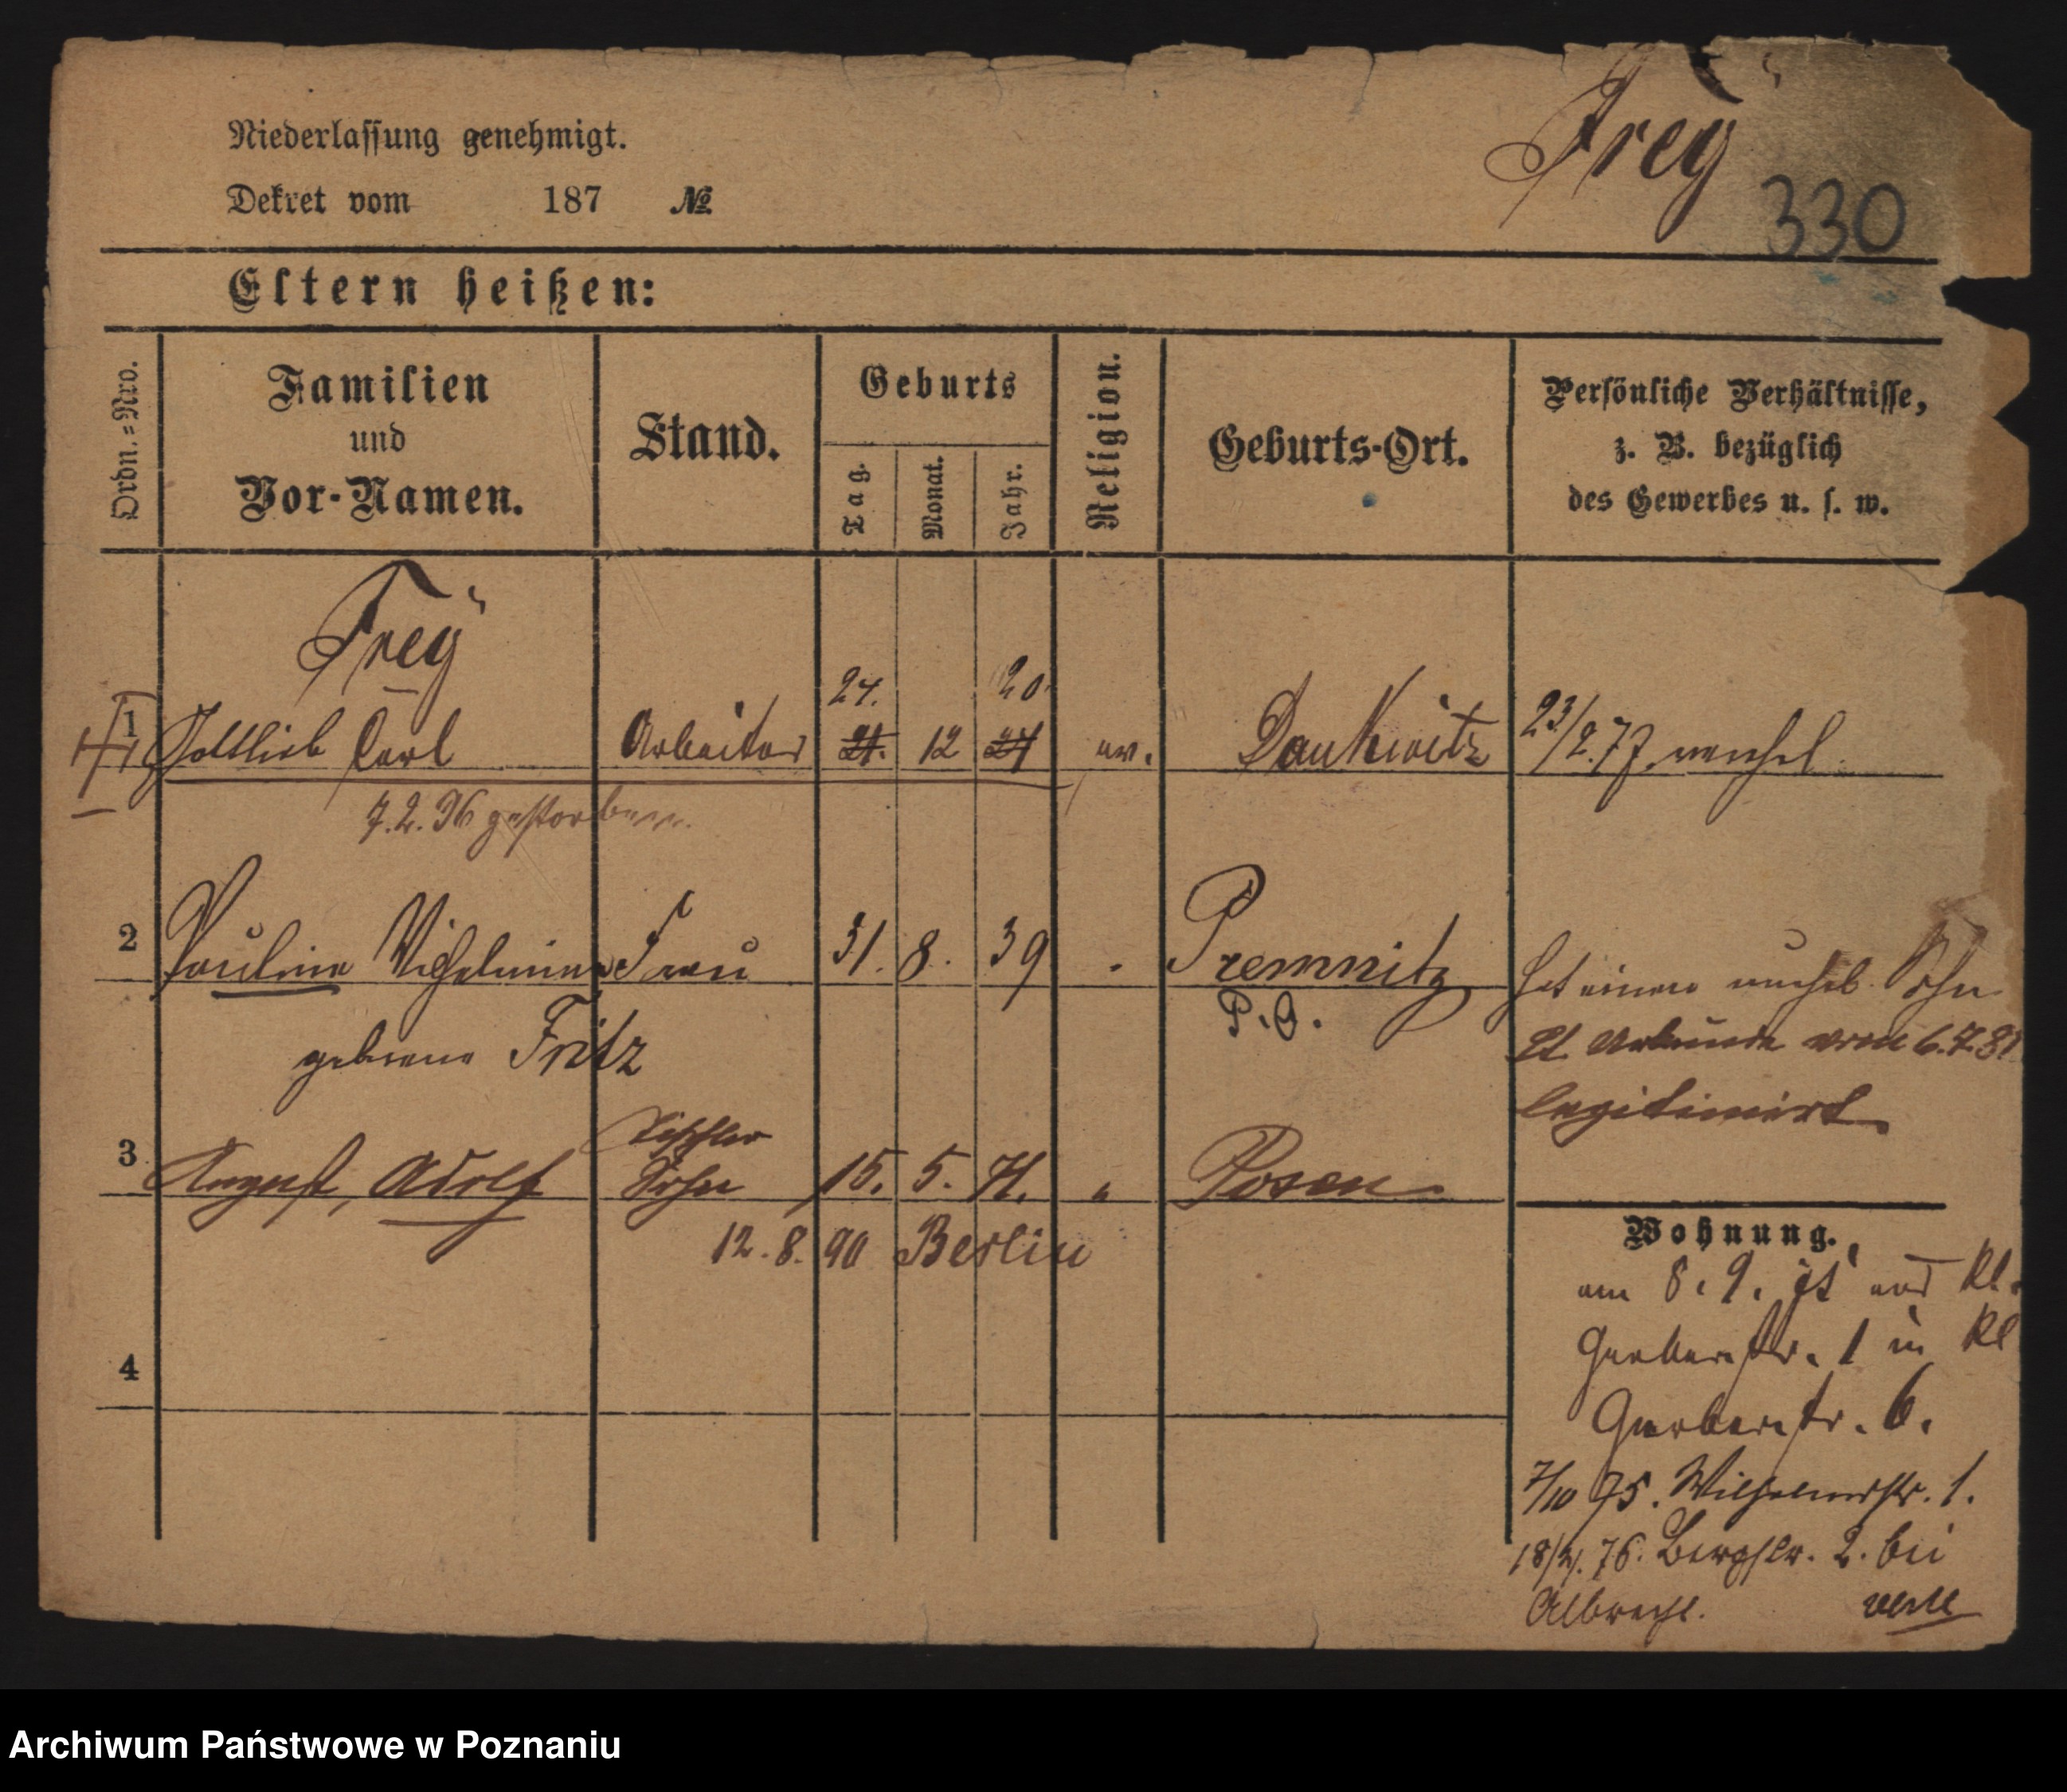 Frey
330
Niederlassung genehmigt.
Dekret vom 187 №
Eltern heißen:
Ordn.=Nro.
Familien
und
Vor-Namen.
Stand.
Geburts
Tag.
Monat.
Jahr.
Religion.
Geburts-Ort.
Persönliche Verhältnisse,
z. B. bezüglich
des Gewerbes u. s. w.
Frey
24. 20.
1 Gottlieb Carl Arbeiter 21. 12 24 ev. Dankwitz 23/2.77.
7.2.96 gestorben.
2 Pauline Wilhelmine Frau 31. 8. 39 Premnitz hat einen unehel. Sohn
P. O.
geborene Fritz lt. Urkunde vom 6.7.81
legitimirt
Tischler
3 August, Adolf Sohn 15. 5. 71. " Posen
12. 8. 90 Berlin
4
Wohnung.
am 8. 9. ist aus Kl.
Gerberstr. 1 in Kl
Gerberstr. 6.
7/10 75. Wilhelmstr. 1.
76. Bergstr. 2. bei
Albrecht.
Archiwum Państwowe w Poznaniu